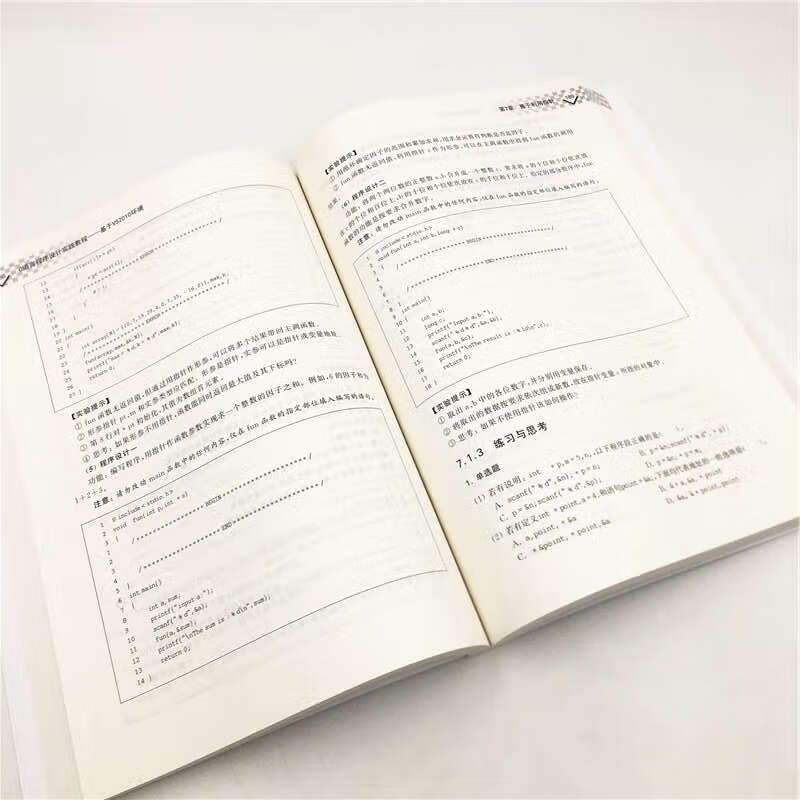 C语言程序设计实践教程——基于VS2010环境
12 if(arr[i]>*pt)
13 {
14 *pt=arr[i];
15 }
16 }
18 int main()
19 {
/**********ERROR**********/
fun(array,max,&k);
printf("max=%d k=%d",max,k);
return 0;
27 }
【实验提示】
① fun 函数无返回值,但通过用指针作形参,可以将多个结果带回主调函数。
② 形参指针 pt,m 和实参类型应匹配。形参是指针,实参可以是指针或变量地址。
③ 第 8 行对 *pt 初始化,其值为数组首元素。
④ 思考:如果形参不用指针,函数能同时返回最大值及其下标吗?
(5) 程序设计一
功能:编写程序,用指针作函数参数实现求一个整数的因子之和。例如,6 的因子和为
1+2+3。
注意:请勿改动 main 函数中的任何内容,仅在 fun 函数的指定部位填入编写的语句。
1 #include<stdio.h>
2 void fun(int n,int *s)
3 { /**********BEGIN**********/
4
/**********END**********/
5 }
6 int main()
7 {
8 int a,sum;
9 printf("input a:");
10 scanf("%d",&a);
11 fun(a,&sum);
12 printf("\nThe sum is:%d\n",sum);
13 return 0;
14 }
第7章 善于利用指针 169
【实验提示】
① 用循环确定因子的范围和累加求和,用求余运算符判断是否为因子。
② fun 函数无返回值,利用指针 s 作为形参,可以在主调函数中得到 fun 函数的调用
结果。
(6) 程序设计二
功能:将两个两位数的正整数 a、b 合并成一个整数 c,要求将 a 的十位和个位依次放
在 c 的个位和百位上,b 的十位和个位依次放在 c 的千位和十位上。给定的部分程序中,fun
函数的功能是按要求合并数字。
注意:请勿改动 main 函数中的任何内容,仅在 fun 函数的指定部位填入编写的语句。
1 #include<stdio.h>
2 void fun(int a,int b,long *c)
3 { /**********BEGIN**********/
4
/**********END**********/
int main()
{
int a,b;
long c;
printf("input a,b:");
scanf("%d%d",&a,&b);
fun(a,b,&c);
printf("\nThe result is:%ld\n",c);
return 0;
}
【实验提示】
① 取出 a、b 中的各位数字,并分别用变量保存。
② 将取出的数据按要求依次组成基数,放在指针变量 c 所指的对象中。
③ 思考:如果不使用指针该如何操作?
7.1.3 练习与思考
1. 单选题
(1) 若有说明:int *p,m=5,n;,以下程序段正确的是( )。
A. scanf("%d",&n),*p=n; B. p=&n;scanf("%d",*p);
C. p=&n;scanf("%d",&p); D. p=&n;*p=m;
(2) 若有定义int *point,a=4;和语句point=&a;,下面均代表地址的一组选项是( )。
A. a,point,*&a B. &*a,&a,*point
C. *&point,*point,&a D. &a,&*point,point